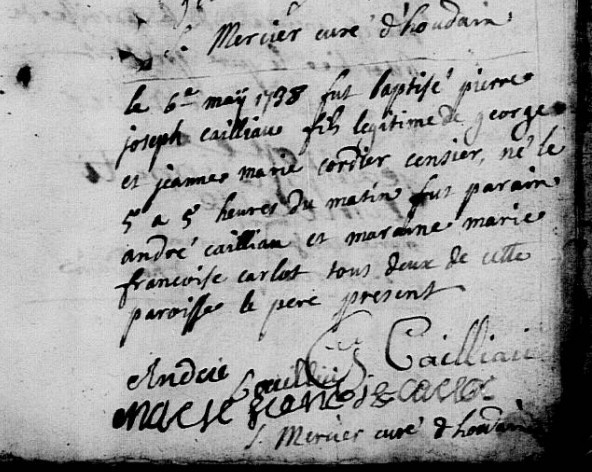 S. Mercier curé d'houdain
le 6e maÿ 1738 fut baptisé pierre
joseph cailliau fils legitime de george
et jeanne marie cordier censier, né le
5 a 5 heures du matin fut parain
andré cailliau et maraine marie
francoise carlot tous deux de cette
paroisse le pere present
G Cailliau
Andrie Cailliau
marie
S. Mercier curé d'houdain